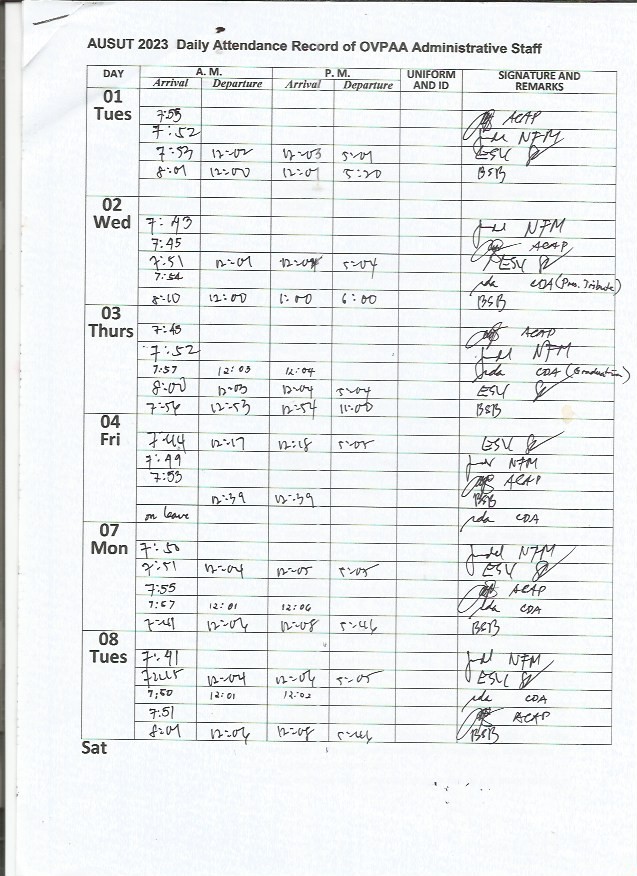 AUSUT 2023 Daily Attendance Record of OVPAA Administrative Staff
DAY A. M. P. M. UNIFORM AND ID SIGNATURE AND REMARKS
Arrival Departure Arrival Departure
01 Tues
7:55 ACAP
7:52 NFM
7:53 12:02 12:03 5:01 ESU
8:01 12:00 12:01 5:20 BSB
02 Wed
7:43 NFM
7:45 ACAP
7:51 12:01 5:04 ESU
7:54 CDA (Pro. Tribute)
8:10 12:00 1:00 6:00 BSB
03 Thurs
7:45 ACAP
7:52 NFM
7:57 12:03 12:04 CDA (Graduation)
8:00 12:03 12:04 5:04 ESU
7:56 12:53 12:54 11:00 BSB
04 Fri
7:44 12:17 12:18 5:05 ESU
7:49 NFM
7:53 ACAP
12:39 12:39 BSB
on leave CDA
07 Mon
7:50 NFM
7:51 12:04 12:05 5:05 ESU
7:55 ACAP
7:57 12:01 12:06 CDA
7:41 12:06 12:08 5:46 BSB
08 Tues
7:41 NFM
7:45 12:04 12:06 5:05 ESU
7:50 12:01 12:02 CDA
7:51 ACAP
8:01 12:06 12:08 5:46 BSB
Sat